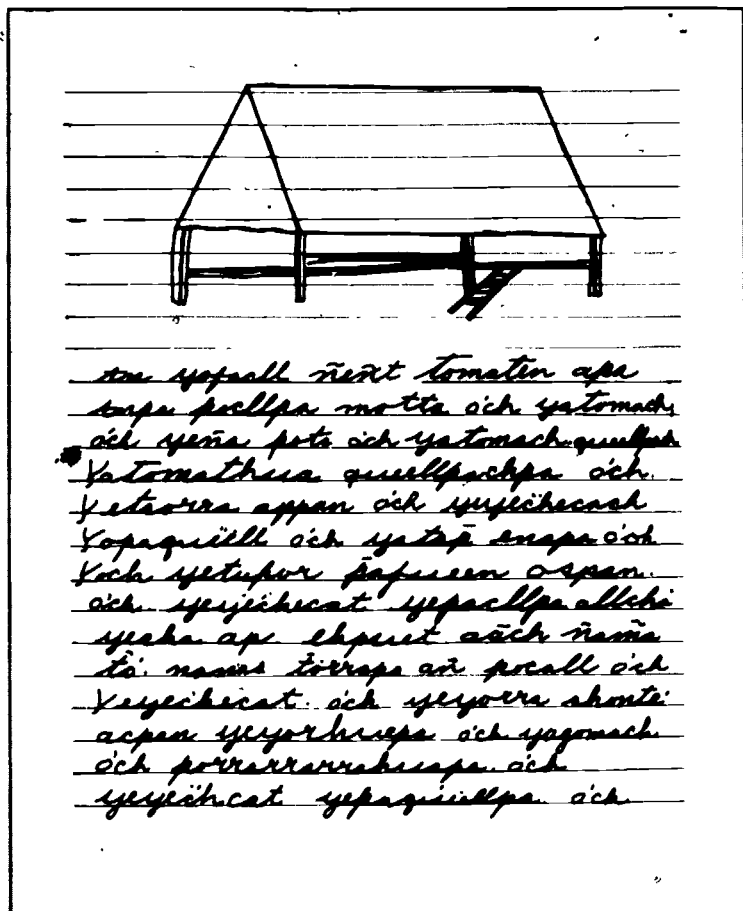 yopaall ñeñt tomatën apa
pocllpa motta öch yatomach
öch yeña pots öch yatomach quellpach
Yatomathua quellpachpa öch
Yetsorra appan öch yuyechecach
Yopaquëll öch yatap enapa öch
Yoch yetupor ospan
öch yeyechecat yepacllpa allchi
yeaha ap ekpuet aäch ñama
to namas torrapa añ pocall öch
Yeyechecat öch yeyorra shonte
acpan yeyorhuepa öch yagomach
öch porrarrarrahuapa öch
yeyechcat yepaquellpa öch